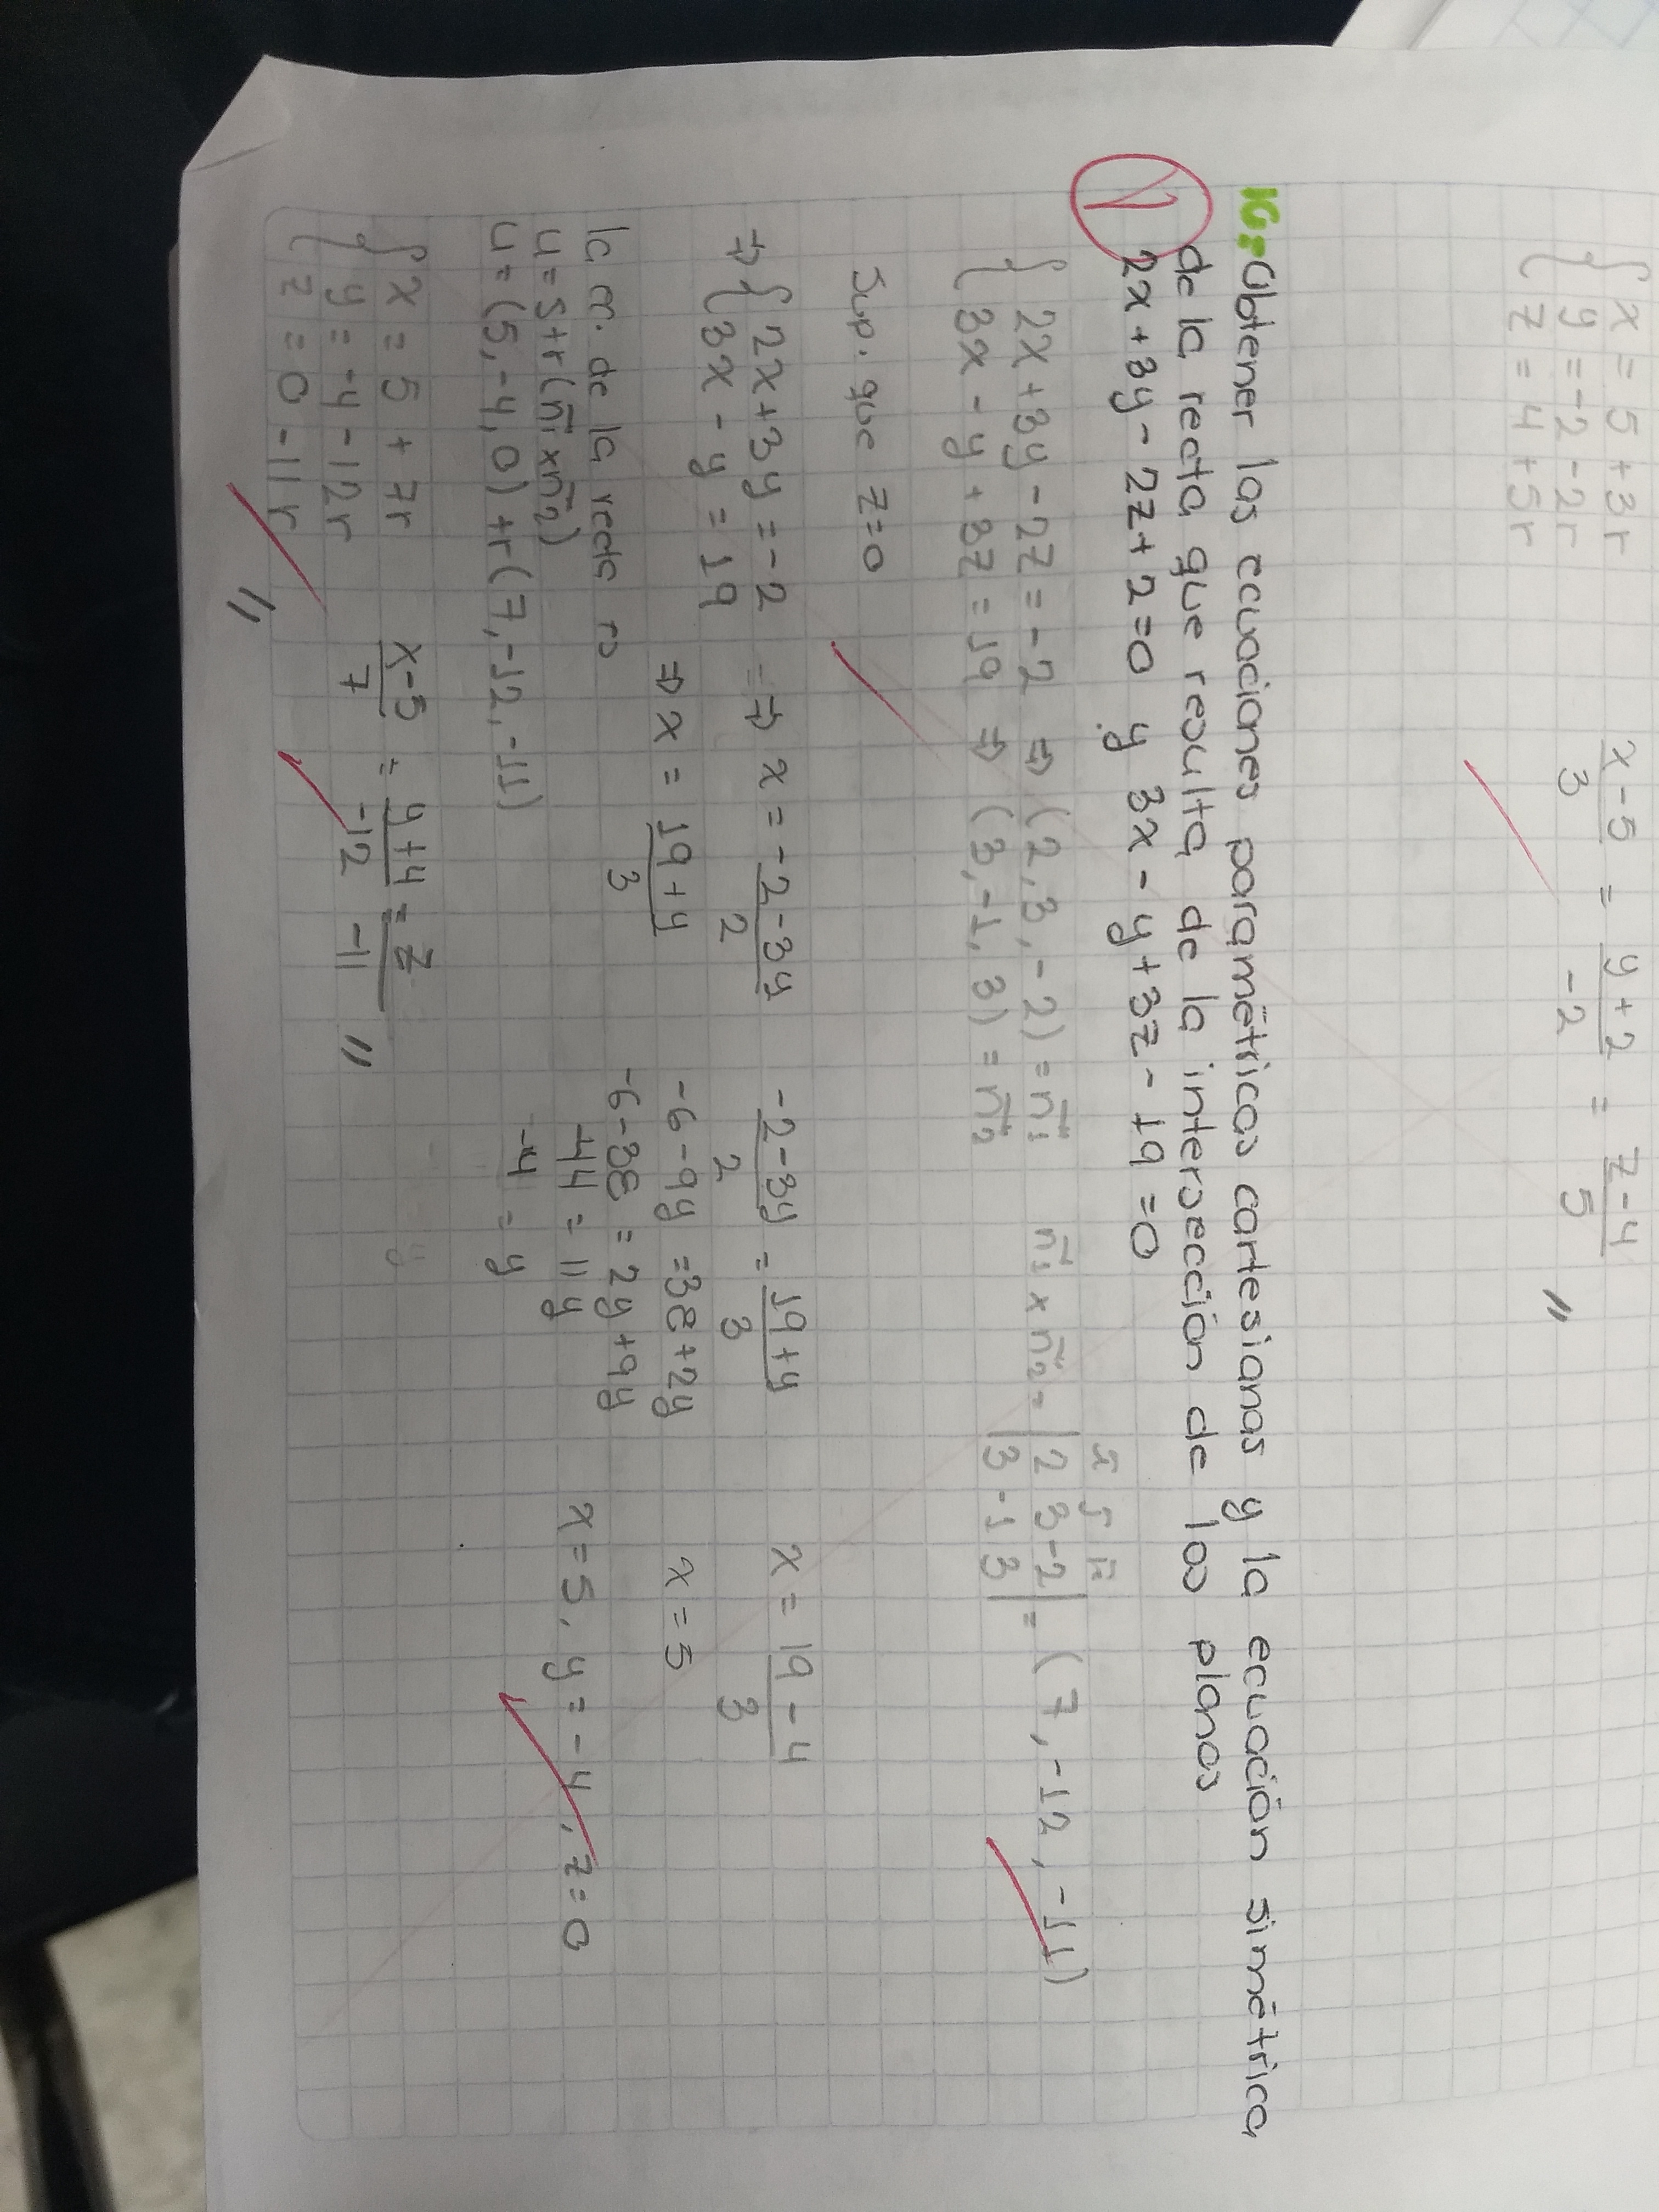 x = 5 + 3r
y = -2 - 2r
z = 4 + 5r
x - 5 / 3 = y + 2 / -2 = z - 4 / 5 //
10: Obtener las ecuaciones paramétricas cartesianas y la ecuación simétrica
de la recta que resulta de la intersección de los planos
2x + 3y - 2z + 2 = 0 y 3x - y + 3z - 19 = 0
2x + 3y - 2z = -2 ⇒ (2, 3, -2) = n⃗1
3x - y + 3z = 19 ⇒ (3, -1, 3) = n⃗2
n⃗1 × n⃗2 = | i j k | 2 3 -2 | 3 -1 3 | = (7, -12, -11)
Sup. que z = 0
⇒ { 2x + 3y = -2
3x - y = 19
⇒ x = -2 - 3y / 2
⇒ x = 19 + y / 3
-2 - 3y / 2 = 19 + y / 3
-6 - 9y = 38 + 2y
-6 - 38 = 2y + 9y
-44 = 11y
-4 = y
x = 19 - 4 / 3
x = 5
x = 5, y = -4, z = 0
la ec. de la recta es
u = s + r(n⃗1 × n⃗2)
u = (5, -4, 0) + r(7, -12, -11)
x = 5 + 7r
y = -4 - 12r
z = 0 - 11r //
x - 5 / 7 = y + 4 / -12 = z / -11 //